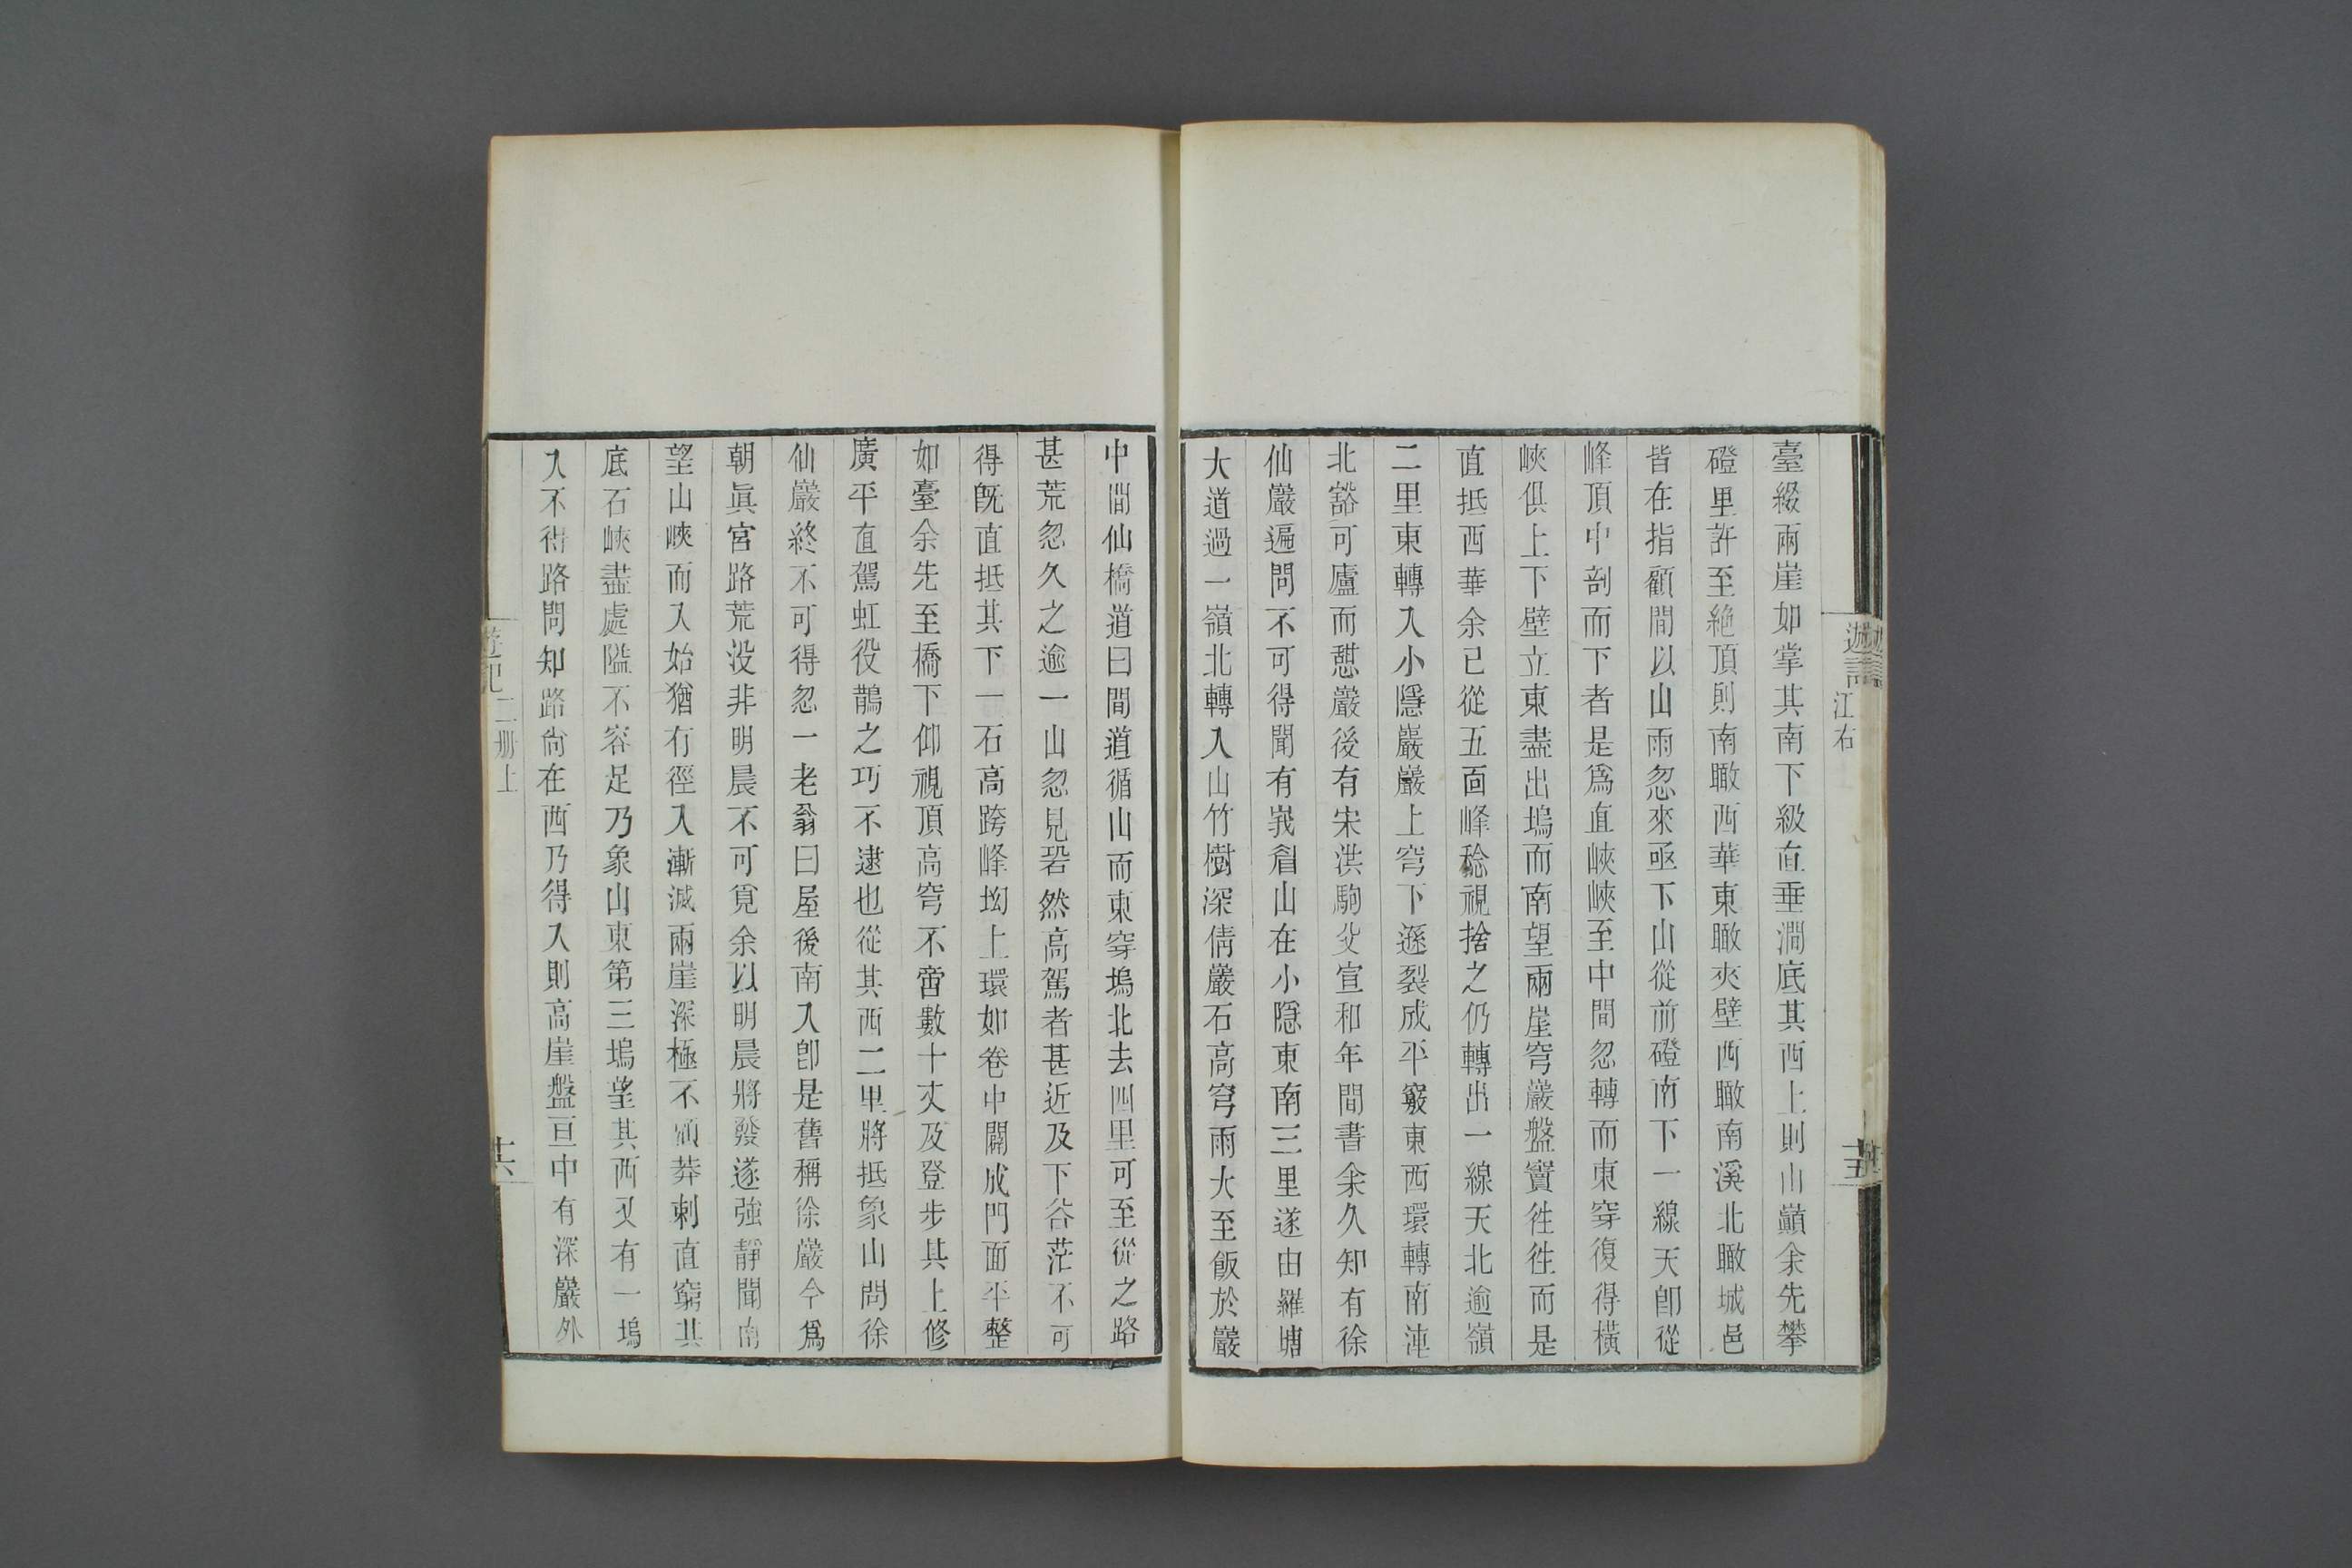 遊記
江右
十五
臺綴兩崖如掌其南下級直垂澗底其西上則山巔余先攀
磴里許至絶頂則南瞰西華東瞰夾壁西瞰南溪北瞰城邑
皆在指顧間以山雨忽來亟下山從前磴南下一線天卽從
峰頂中剖而下者是爲直峽峽至中間忽轉而東穿復得橫
峽俱上下壁立東盡出塢而南望兩崖穹巖盤竇徃徃而是
直抵西華余已從五面峰稔視捨之仍轉出一線天北逾嶺
二里東轉入小隱巖巖上穹下遜裂成平竅東西環轉南連
北豁可廬而憇巖後有宋洪駒父宣和年間書余久知有徐
仙巖遍問不可得聞有峩眉山在小隱東南三里遂由羅塘
大道過一嶺北轉入山竹樹深倩巖石高穹雨大至飯於巖
中間仙橋道曰間道循山而東穿塢北去四里可至從之路
甚荒忽久之逾一山忽見硌然高駕者甚近及下谷茫不可
得旣直抵其下一石高跨峰坳上環如卷中闢成門面平整
如臺余先至橋下仰視頂高穹不啻數十丈及登步其上修
廣平直駕虹役鵲之巧不逮也從其西二里將抵象山問徐
仙巖終不可得忽一老翁曰屋後南入卽是舊稱徐巖今爲
朝眞宮路荒没非明晨不可覓余以明晨將發遂強靜聞南
望山峽而入始猶有徑入漸滅兩崖深極不顧莽刺直窮其
底石峽盡處隘不容足乃象山東第三塢望其西又有一塢
入不得路問知路尙在西乃得入則高崖盤亘中有深巖外
遊記
二册上
十六